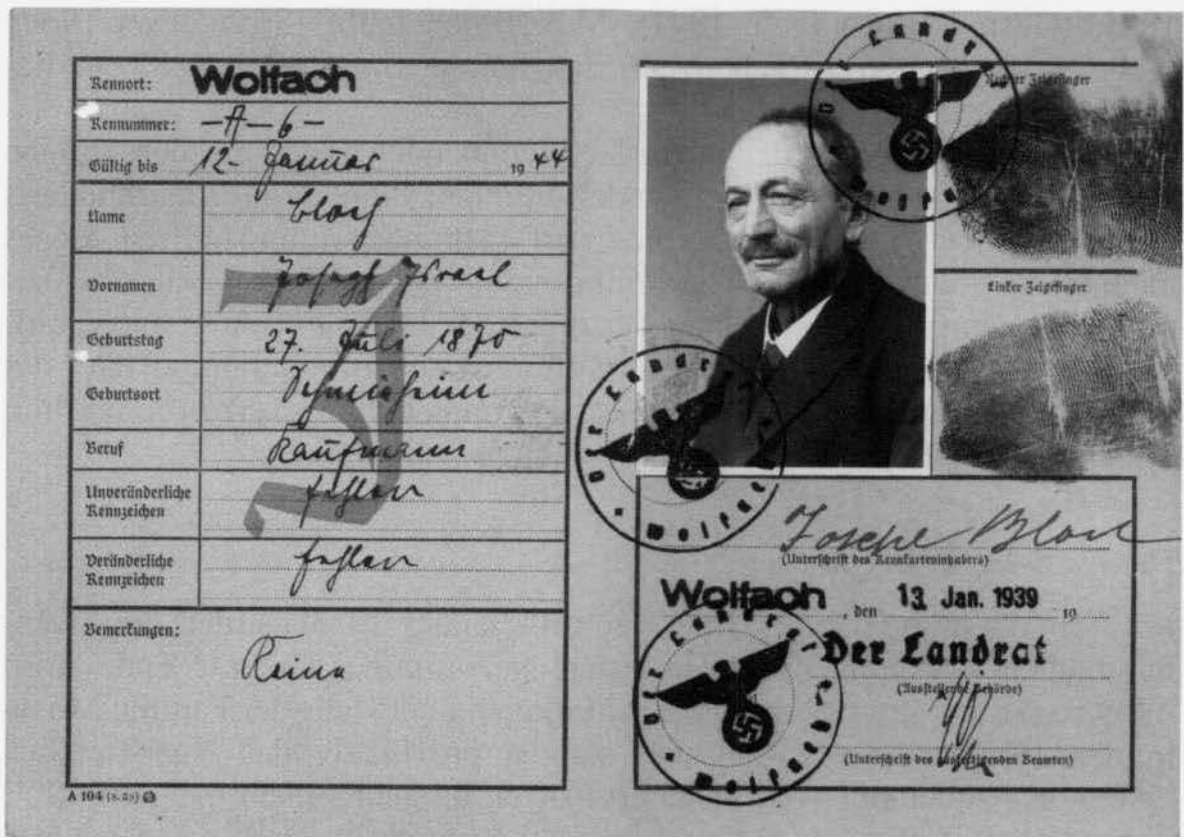 Kennort: Wolfach
Kennummer: -A-6-
Gültig bis 12- Januar 1944
Name Bloch
Vornamen Joseph Israel
Geburtstag 27. Juli 1870
Geburtsort Schmieheim
Beruf Kaufmann
Unveränderliche Kennzeichen fehlen
Veränderliche Kennzeichen fehlen
Bemerkungen: Keine
J
A 104 (8.38)
Rechter Zeigefinger
Linker Zeigefinger
Der Landrat Wolfach
Der Landrat Wolfach
Joseph Bloch
(Unterschrift des Kennkarteninhabers)
Wolfach, den 13. Jan. 1939 19
Der Landrat
(Ausstellende Behörde)
Der Landrat Wolfach
(Unterschrift des ausfertigenden Beamten)